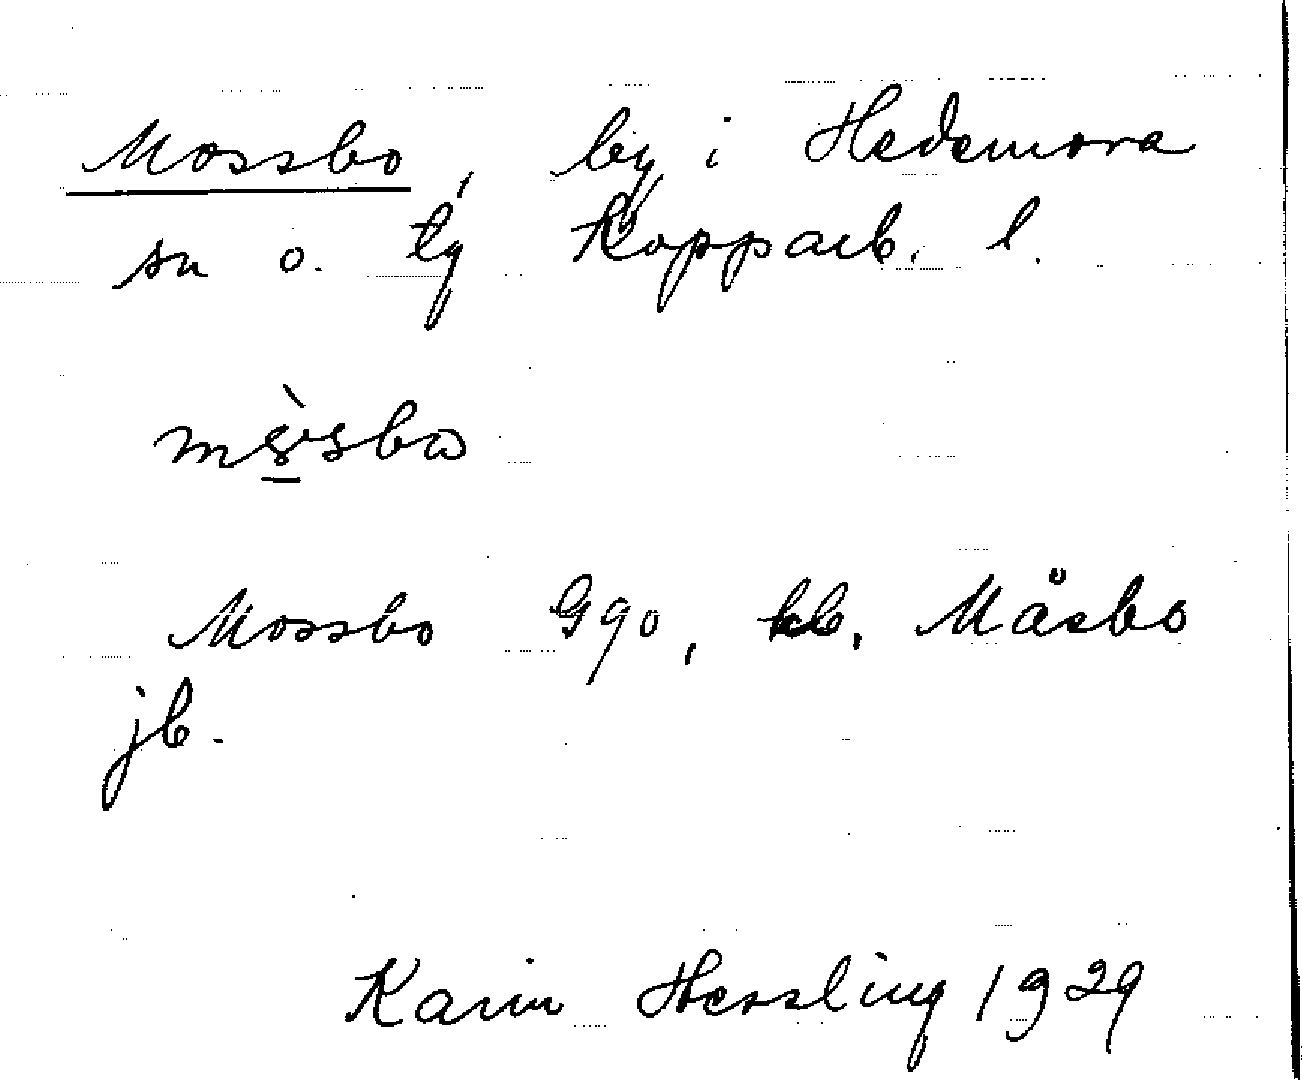 Mossbo, by i Hedemora
sn o. tg Kopparb. l.
Mossbo Ggo, kb. Måsbo
jb.
Karin Hessling 1929